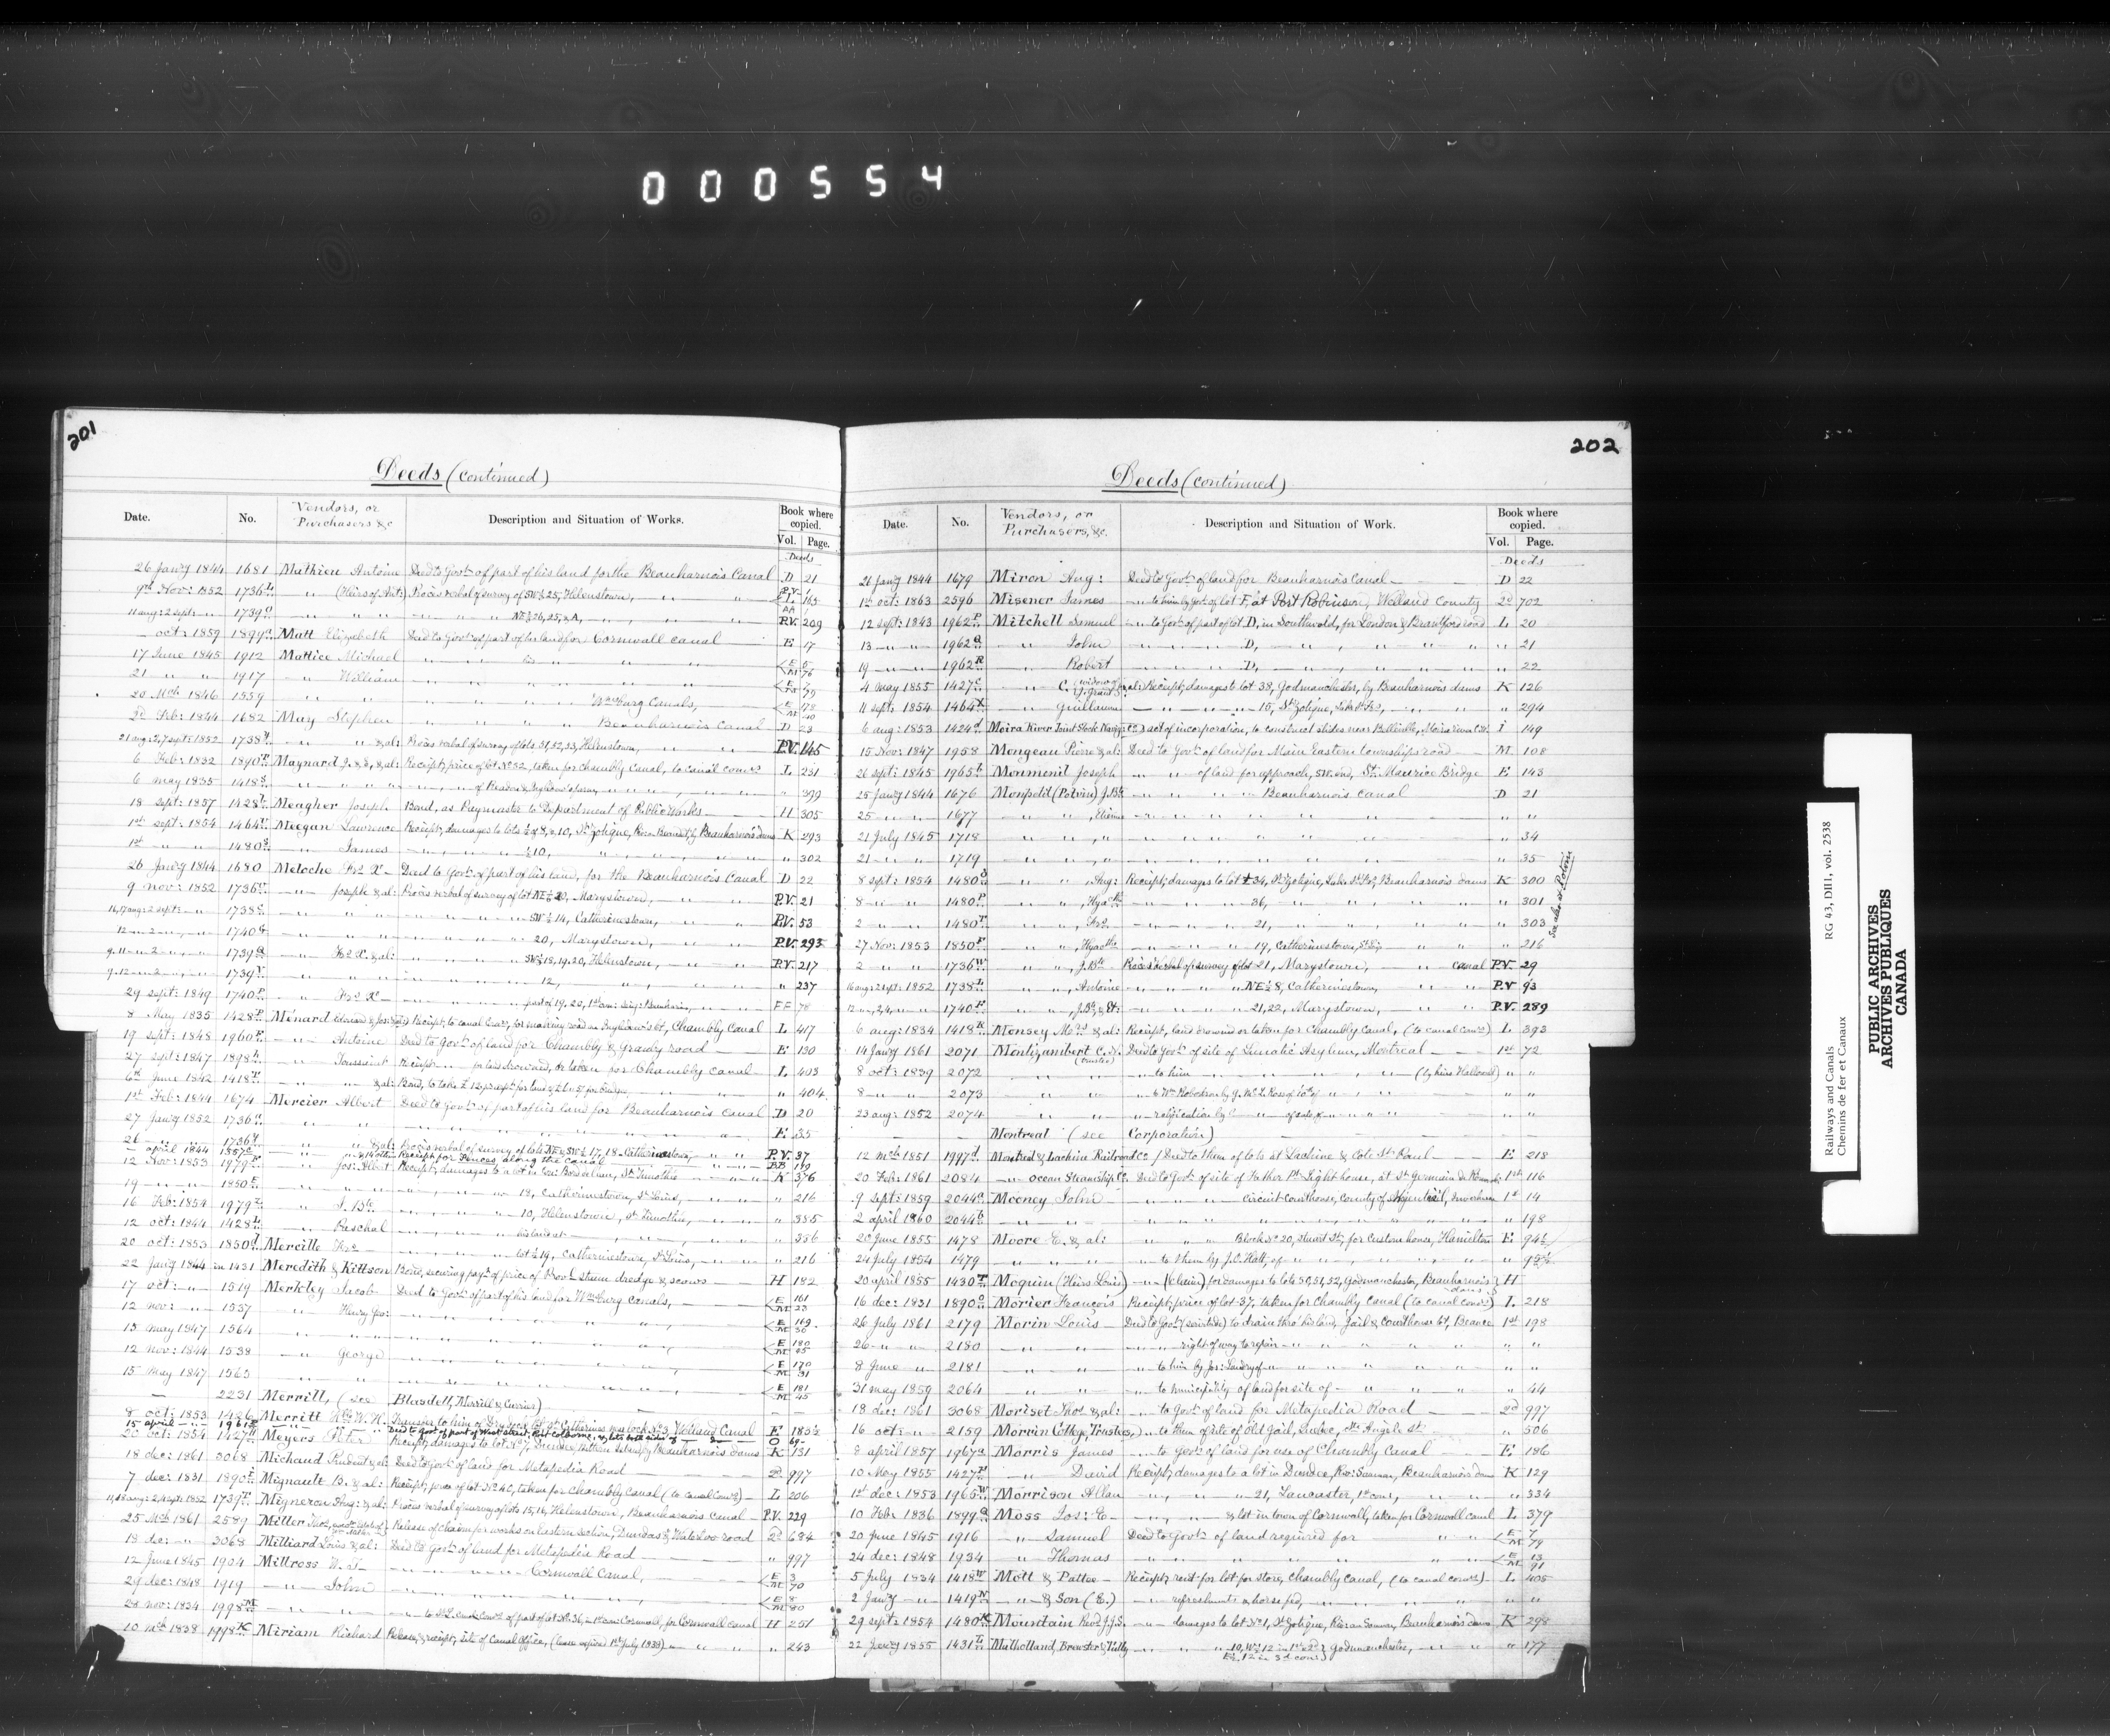 000554
201
Deeds (continued)
Date. No. Vendors, or Purchasers &c Description and Situation of Works. Book where copied. Vol. Page.
Deeds
26 Janry 1844 1681 Mathieu Antoine Deed to Govt of part of his land for the Beauharnois Canal D 21
9th Nov: 1852 1736 " (Heirs of Ant:) Procès verbal of survey of SW½ 25, Helenstown, " " 165
11 aug: 2 sept: " 1739 " " " " NE½ 26, 25, & A, " " P.V. 209
oct: 1859 1899 Matt Elizabeth Deed to Govt of part of his land for Cornwall Canal E 17
17 June 1845 1912 Mattice Michael " " " " E 6 M 76
21 " " 1917 " William " " " " E 7 M 79
20 Mch 1846 1559 " " " " Wmsburg Canals, E 178 M 40
2d Feb: 1844 1682 May Stephen " " " Beauharnois Canal D 23
21 aug: 2,7 sept: 1852 1738 " " & al: Procès verbal of survey of lots 31, 32, 33, Helenstown, " " P.V. 145
6 Feb: 1832 1890 Maynard J. & E, & al: Receipt, price of lot No 52, taken for Chambly Canal, to canal comrs L 231
6 may 1835 1418 S " " " " " " 399
18 sept: 1857 1428 Meagher Joseph Bond, as Paymaster to Department of Public Works H 305
1st sept: 1854 1464 Meegan Lawrence Receipt, damages to lots ½ of 8, & 10, St Zotique, by Beauharnois dams K 293
1st " " 1480 " James " " ½ 10, " " " 302
26 Janry 1844 1680 Meloche Frs X. Deed to Govt of part of his land, for the Beauharnois Canal D 22
9 nov: 1852 1736 " Joseph & al: Procès verbal of survey of lot NE½ 20, Marystown, " " P.V. 21
16,17 aug: 2 sept: " 1738 " " " " SW½ 14, Catherinestown, " " P.V. 53
12 " 2 " " 1740 G " " " " 20, Marystown, " " P.V. 293
9. 11 " 2 " " 1739 Q " Frs X. & al: " " SW½ 18, 19, 20, Helenstown, " " P.V. 217
9. 12 " 2 " " 1739 " " " " 12, " " " 237
29 sept: 1849 1740 P " Frs X. " " part of 19, 20, FF 78
8 May 1835 1428 P Ménard Receipt, to canal Comrs, for making road on Chambly Canal L 417
19 sept: 1848 1960 " Antoine Deed to Govt of land for Chambly & Granby road E 130
27 sept: 1847 1898 " Toussaint Receipt " for land drowned, or taken for Chambly Canal L 403
6th June 1842 1418 " " & al: Bond, to take £12, " " " 404
1st Feb: 1844 1674 Mercier Albert Deed to Govt of part of his land for Beauharnois Canal D 20
27 Janry 1852 1736 " " " " " " E 35
26 " " 1736 " " & al: Procès verbal of survey of lots NE½, SW½ 17, 18 Catherinestown, " " P.V. 37
april 1844 1857 " " & 14 others Receipt for fences along the canal BB 179
12 Nov: 1853 1979 " Jos: Albert Receipt, damages to a lot in St Timothée " " K 376
19 " " 1850 E " " " " 18, Catherinestown, St Louis, " " " 216
16 Feb: 1854 1979 " J. Bte " " 10, Helenstown, St Timothée, " " " 335
12 oct: 1844 1428 " Paschal " " his land at " " " 336
20 oct: 1853 1850 Mercille Frs " " lot ½ 19, Catherinestown, St Louis, " " " 216
22 Janry 1844 1431 Meredith & Kittson Bond, securing payt of price of Provl steam dredge & scows H 182
17 oct: " 1519 Merkley Jacob Deed to Govt of part of his land for Wmsburg Canals, E 161 M 23
12 nov: " 1537 " Henry Geo: " " " " E 169 M 30
15 may 1847 1564 " " " " " " E 180 M 45
12 nov: 1844 1538 " George " " " " E 170 M 31
15 May 1847 1565 " " " " " " E 181 M 45
2231 Merrill, (see Blasdell, Merrill & Currier)
8 oct: 1853 1426 Merritt W. H. Transfer to him of Dry dock lot St Catherines near lock No 3, Welland Canal E 183½
15 april " 1961 " " Deed to Govt of part of West Street, Port Colborne, & lots both sides of " O 69
20 oct: 1854 1427 Meyers Peter Receipt, damages to lot No 7, Dundee, by Beauharnois dams K 131
18 dec: 1861 3068 Michaud Prudent & al: Deed to Govt of land for Metapedia Road 2d 997
7 dec: 1831 1890 Mignault B. & al: Receipt, price of lot No 40, taken for Chambly Canal (to canal Comrs) L 206
11,18 aug: 2,4 sept: 1852 1739 Mignereau Aug: & al: Procès verbal of survey of lots 15, 16, Helenstown, Beauharnois Canal P.V. 229
25 Mch 1861 2589 Miller Thos, Release of claim for works on Eastern section, Dundas & Waterloo road 2d 684
18 dec: " 3068 Milliard Louis & al: Deed to Govt of land for Metapedia Road " 997
12 June 1845 1904 Millross W. T. " " Cornwall Canal, E 3 M 70
29 dec: 1848 1919 " John " " " " E 8 M 80
28 nov: 1834 1998 M " " " to St L. canal Comrs of part of lot No 36, 1st con: Cornwall, for Cornwall canal H 251
10 Mch 1838 1998 K Miriam Richard Release, & receipt, site of Canal Office, (lease expired 1st July 1838) " " " 243
202
Deeds (continued)
Date. No. Vendors, or Purchasers, &c. Description and Situation of Work. Book where copied. Vol. Page.
Deeds
21 Janry 1844 1679 Miron Aug: Deed to Govt of land for Beauharnois Canal D 22
1st oct: 1863 2596 Misener James " to him by Govt of lot F, at Port Robinson, Welland County 2d 702
12 sept: 1843 1962 P Mitchell Samuel " to Govt of part of lot D, in Southwold, for London & Brantford road L 20
13 " " 1962 Q " John " " " D, " " " " 21
19 " " 1962 R " Robert " " " D, " " " " 22
4 May 1855 1427 C " C. (widow of J. Grant & al:) Receipt, damages to lot 38, Godmanchester, by Beauharnois dams K 126
11 sept: 1854 1464 X " Guillaume " " " 15, St Zotique, " " " 294
6 aug: 1853 1424 d Moira River Joint Stock Navign Co.) act of incorporation, to construct slides near Belleville, Moira River C.W. I 149
15 Nov: 1847 1958 Mongeau Pierre & al: Deed to Govt of land for Main Eastern townships road M 108
26 sept: 1845 1965 Monmenil Joseph " " of land for approach, SW. end, St Maurice Bridge E 143
25 Janry 1844 1676 Monpetit (Potvin) J. Bte " " " Beauharnois Canal D 21
25 " " 1677 " " , Etienne " " " " " "
21 July 1845 1718 " " , " " " " " " 34
21 " " 1719 " " " " " " " 35
8 sept: 1854 1480 " " , Aug: Receipt, damages to lot 34, St Zotique, Beauharnois dams K 300
8 " " 1480 P " " , Hyacthe " " " 36, " " " " 301
2 " " 1480 T " " , Frs " " " 21, " " " " 303
See also at Potvin
27 Nov: 1853 1850 F " " , Hyacthe " " " 19, Catherinestown, " " " 216
2 " " 1736 W " " , J. Bte Procès verbal of survey of lot 21, Marystown, " canal P.V. 29
16 aug: 2 sept: 1852 1738 " " , Antoine " " " NE½ 8, Catherinestown, " " P.V. 93
12 " 2,4, " " 1740 F " " , J. Bte & Et: " " " 21, 22, Marystown, " " P.V. 289
6 aug: 1834 1418 K Monsey Mrs & al: Receipt, land drowned or taken for Chambly Canal, (to canal Comrs) L 393
14 Janry 1861 2071 Montizambert C. N. (trustee) Deed to Govt of site of Lunatic Asylum, Montreal 1st 72
8 oct: 1839 2072 " " " to him " " (by heirs Hallowell) " "
8 " " 2073 " " " to Wm Robertson by " " " "
23 aug: 1852 2074 " " " ratification by " of sale, of " " " "
Montreal (see Corporation)
12 Mch 1851 1997 d Montreal & Lachine Railroad Co.) Deed to them of lots at Lachine & Cote St Paul E 218
20 Feb: 1861 2084 " Ocean Steamship Co. Deed to Govt of site of Father Pt Light house, at St Germain de Rimouski 1st 116
9 sept: 1859 2044 Mooney John " " " Circuit Courthouse, County of Megantic, Inverness 1st 14
2 april 1860 2044 b " " " " " " " " 198
20 June 1855 1478 Moore E. & al: " " " Block No 20, Stuart St, for Custom house, Hamilton E 94½
24 July 1854 1479 " " " to them by J. O. Hatt, of " " " " 95½
20 april 1855 1430 T Moquin (Heirs Louis) " (claim) for damages to lots 50, 51, 52, Godmanchester, Beauharnois dams H
16 dec: 1831 1890 O Morier Francois Receipt, price of lot 37, taken for Chambly Canal (to canal Comrs) L 218
26 July 1861 2179 Morin Louis Deed to Govt (servitude) to drain thro' his land, Jail & Courthouse lot, Beauce 1st 198
26 " " 2180 " " " right of way to repair " " " " "
8 June " 2181 " " " to him by Jos: Landry of " " " " "
31 may 1859 2064 " " " to municipality of land for site of " " " " 44
18 dec: 1861 3068 Moriset Thos & al: " to Govt of land for Metapedia Road 2d 997
16 oct: " 2159 Morrin College, Trustees,) " to them of site of Old Gaol, Quebec, Ste Angele St " 506
8 april 1857 1967 a Morris James " to Govt of land for use of Chambly Canal E 186
10 May 1855 1427 " David Receipt, damages to a lot in Dundee, Beauharnois dams K 129
1st dec: 1853 1965 W Morrison Allan " " " 21, Lancaster, 1st con, " " " 334
10 Feb: 1836 1899 Q Moss Jos: E. " " & lot in town of Cornwall, taken for Cornwall canal L 379
20 June 1845 1916 " Samuel Deed to Govt of land required for " " E 7 M 79
24 dec: 1848 1934 " Thomas " " " " " E 13 M 91
5 July 1834 1418 W Mott & Pattee Receipt, rent for lot for store, Chambly Canal, (to canal Comrs) L 405
2 Janry " 1419 N " & Son (E.) " refreshments & horse fed, " " " "
29 sept: 1854 1480 K Mountain Revd J. J. S. " damages to lot No 1, St Zotique, Beauharnois dams K 298
22 Janry 1855 1431 Mulholland, Brewster & Tully " " " 10, W½ 12 in 1st & 2d, E½ 12 in 3d con:) Godmanchester, " " " 177
RG 43, DIII, vol. 2538
Railways and Canals
Chemins de fer et Canaux
PUBLIC ARCHIVES
ARCHIVES PUBLIQUES
CANADA